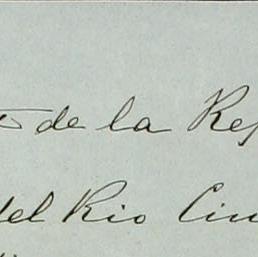 de la Rep
del Rio Ciu